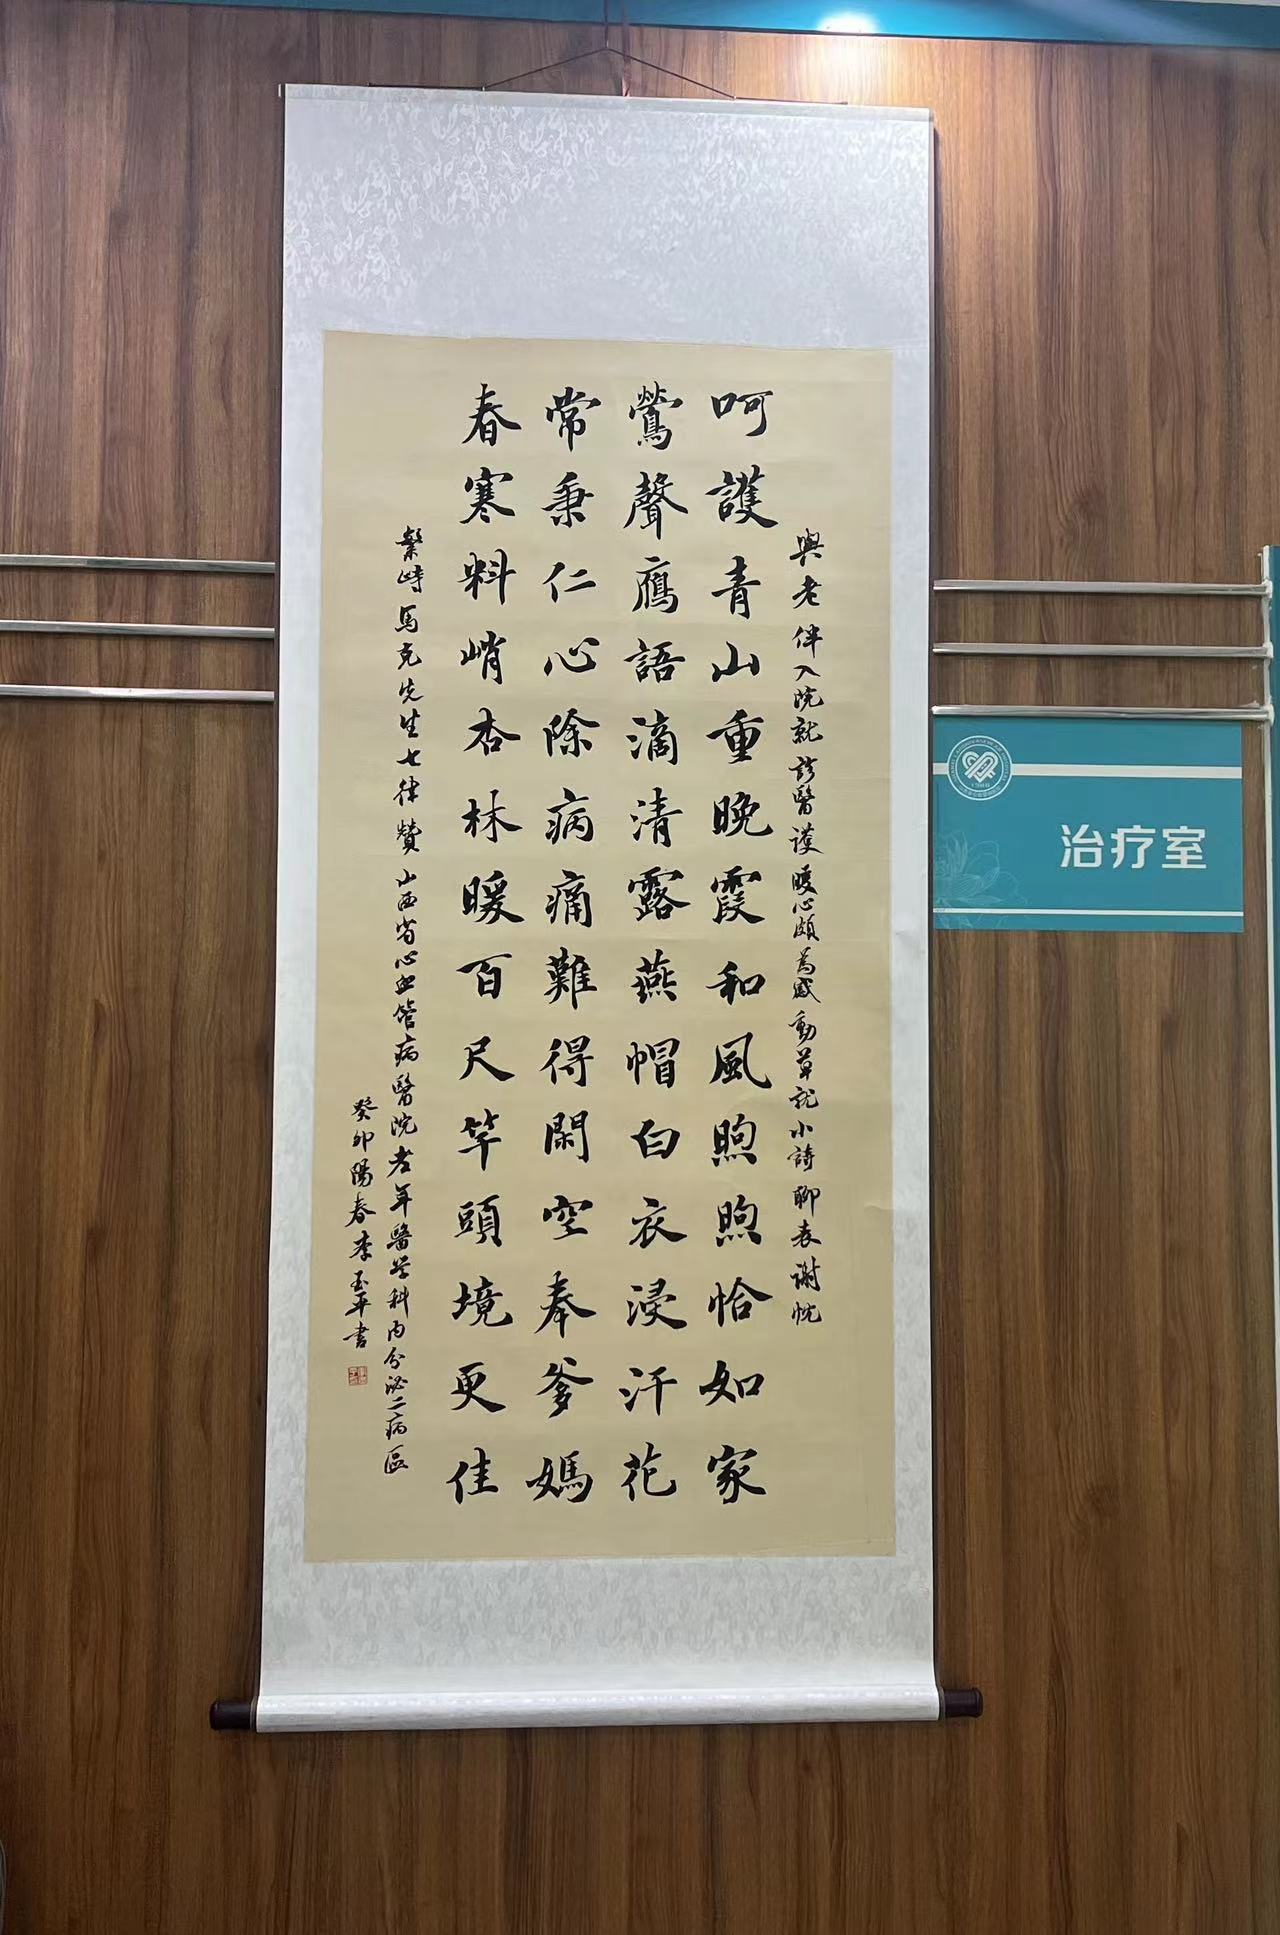 與老伴入院就診醫護暖心頗爲感動草就小詩聊表謝忱
呵護青山重晚霞和風煦煦恰如家
鶯聲鴈語滴清露燕帽白衣浸汗花
常秉仁心除病痛難得閑空奉爹媽
春寒料峭杏林暖百尺竿頭境更佳
繁峙馬克先生七律贊山西省心血管病醫院老年醫学科内分泌二病區
癸卯陽春李玉平書
治疗室